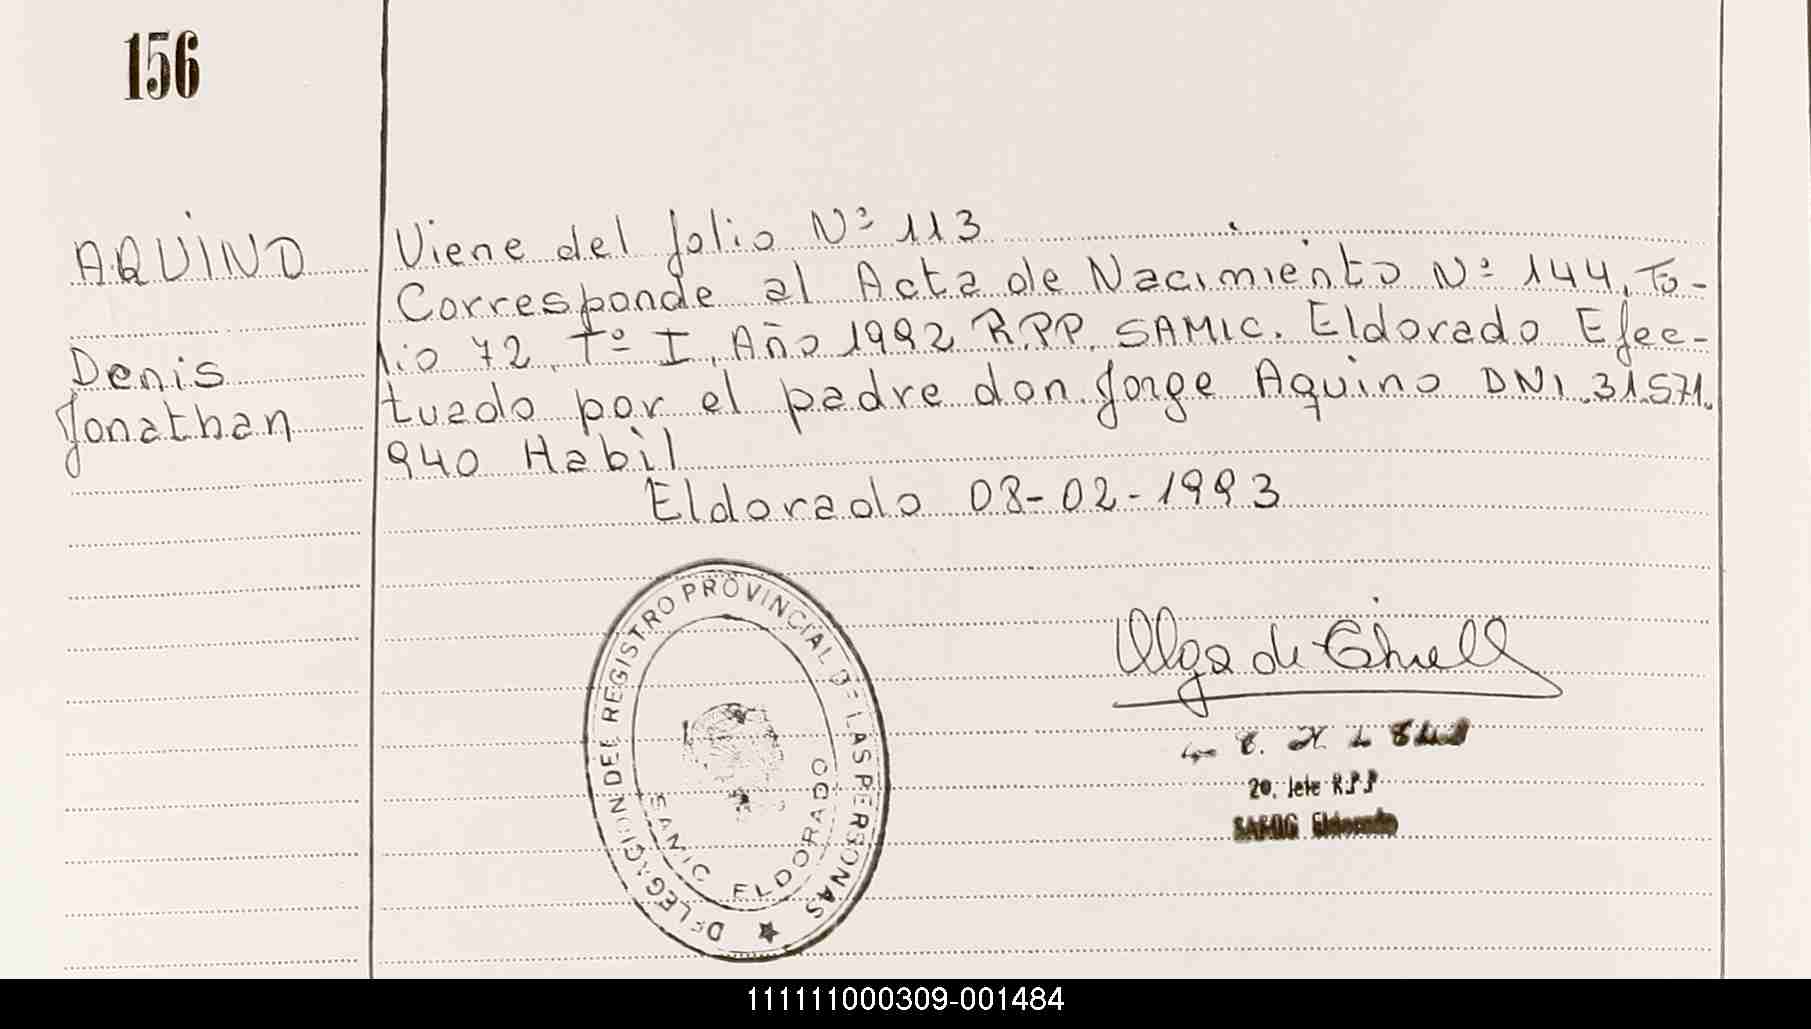 156
AQUINO
Denis
Jonathan
Viene del folio Nº 113
Corresponde al Acta de Nacimiento Nº 144, Fo-
lio 72, Tº I, Año 1992 R.P.P. SAMIC. Eldorado Efec-
tuado por el padre don Jorge Aquino DNI.31.571.
940 Habil
Eldorado 08-02-1993
DELEGACION DEL REGISTRO PROVINCIAL DE LAS PERSONAS
SAMIC ELDORADO
Olga de
20. Jefe R.P.P
Eldorado
111111000309-001484